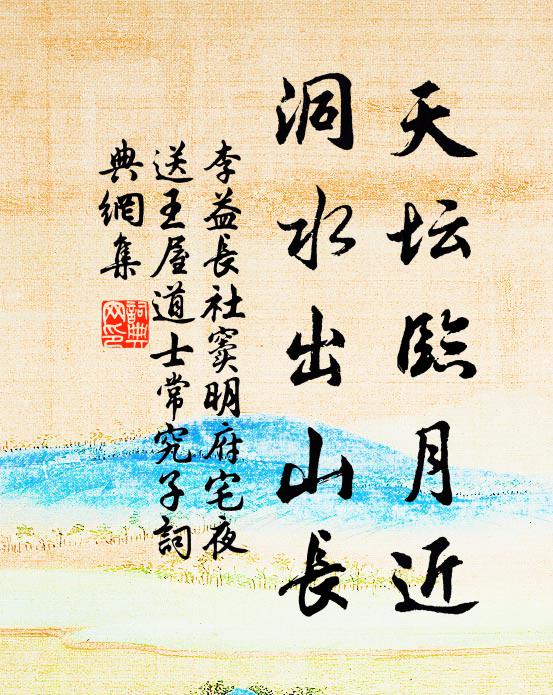 天坛臨月近
洞水出山長
李益長社窦明府宅夜
送王屋道士常究子詞
典網集
詞典
网印